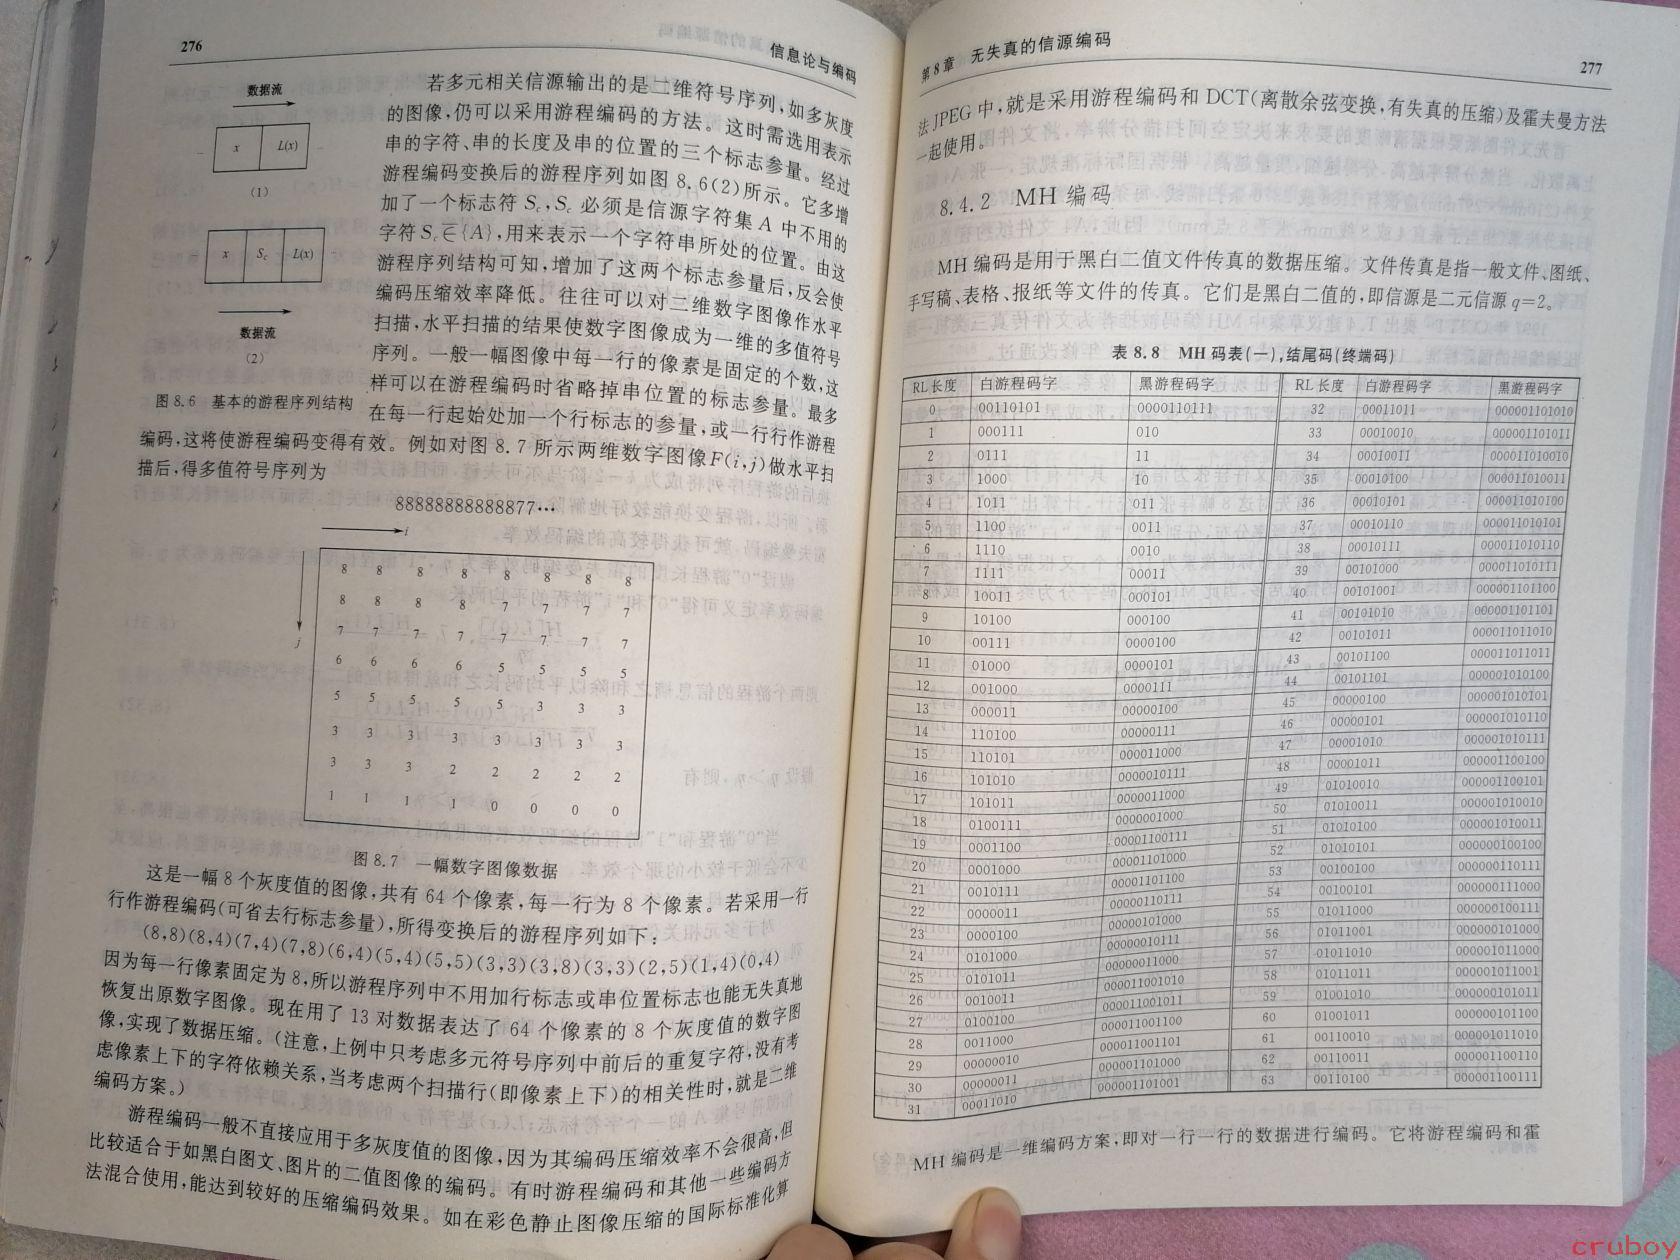 276
信息论与编码
数据流
x L(x)
(1)
x Sc L(x)
数据流
(2)
图 8.6 基本的游程序列结构
若多元相关信源输出的是二维符号序列,如多灰度
的图像,仍可以采用游程编码的方法。这时需选用表示
串的字符、串的长度及串的位置的三个标志参量。经过
游程编码变换后的游程序列如图 8.6(2)所示。它多增
加了一个标志符 Sc,Sc 必须是信源字符集 A 中不用的
字符 Sc∈{A},用来表示一个字符串所处的位置。由这
游程序列结构可知,增加了这两个标志参量后,反会使
编码压缩效率降低。往往可以对二维数字图像作水平
扫描,水平扫描的结果使数字图像成为一维的多值符号
序列。一般一幅图像中每一行的像素是固定的个数,这
样可以在游程编码时省略掉串位置的标志参量。最多
在每一行起始处加一个行标志的参量,或一行行作游程
编码,这将使游程编码变得有效。例如对图 8.7 所示两维数字图像F(i,j)做水平扫
描后,得多值符号序列为
88888888888877···
i
j
8 8 8 8 8 8 8 8
8 8 8 8 7 7 7 7
7 7 7 7 7 7 7 7
6 6 6 6 5 5 5 5
5 5 5 5 5 3 3 3
3 3 3 3 3 3 3 3
3 3 3 2 2 2 2 2
1 1 1 1 0 0 0 0
图 8.7 一幅数字图像数据
这是一幅 8 个灰度值的图像,共有 64 个像素,每一行为 8 个像素。若采用一行
行作游程编码(可省去行标志参量),所得变换后的游程序列如下:
(8,8)(8,4)(7,4)(7,8)(6,4)(5,4)(5,5)(3,3)(3,8)(3,3)(2,5)(1,4)(0,4)
因为每一行像素固定为8,所以游程序列中不用加行标志或串位置标志也能无失真地
恢复出原数字图像。现在用了 13 对数据表达了 64 个像素的 8 个灰度值的数字图
像,实现了数据压缩。(注意,上例中只考虑多元符号序列中前后的重复字符,没有考
虑像素上下的字符依赖关系,当考虑两个扫描行(即像素上下)的相关性时,就是二维
编码方案。)
游程编码一般不直接应用于多灰度值的图像,因为其编码压缩效率不会很高,但
比较适合于如黑白图文、图片的二值图像的编码。有时游程编码和其他一些编码方
法混合使用,能达到较好的压缩编码效果。如在彩色静止图像压缩的国际标准化算
第 8 章 无失真的信源编码
277
法 JPEG 中,就是采用游程编码和 DCT(离散余弦变换,有失真的压缩)及霍夫曼方法
一起使用。
8.4.2 MH 编码
MH 编码是用于黑白二值文件传真的数据压缩。文件传真是指一般文件、图纸、
手写稿、表格、报纸等文件的传真。它们是黑白二值的,即信源是二元信源 q=2。
表 8.8 MH 码表(一),结尾码(终端码)
RL长度 白游程码字 黑游程码字 RL长度 白游程码字 黑游程码字
0 00110101 0000110111 32 00011011 000001101010
1 000111 010 33 00010010 000001101011
2 0111 11 34 00010011 000011010010
3 1000 10 35 00010100 000011010011
4 1011 011 36 00010101 000011010100
5 1100 0011 37 00010110 000011010101
6 1110 0010 38 00010111 000011010110
7 1111 00011 39 00101000 000011010111
8 10011 000101 40 00101001 000001101100
9 10100 000100 41 00101010 000001101101
10 00111 0000100 42 00101011 000011011010
11 01000 0000101 43 00101100 000011011011
12 001000 0000111 44 00101101 000001010100
13 000011 00000100 45 00000100 000001010101
14 110100 00000111 46 00000101 000001010110
15 110101 000011000 47 00001010 000001010111
16 101010 0000010111 48 00001011 000001100100
17 101011 0000011000 49 01010010 000001100101
18 0100111 0000001000 50 01010011 000001010010
19 0001100 00001100111 51 01010100 000001010011
20 0001000 00001101000 52 01010101 000000100100
21 0010111 00001101100 53 00100100 000000110111
22 0000011 00000110111 54 00100101 000000111000
23 0000100 00000101000 55 01011000 000000100111
24 0101000 00000010111 56 01011001 000000101000
25 0101011 00000011000 57 01011010 000001011000
26 0010011 000011001010 58 01011011 000001011001
27 0100100 000011001011 59 01001010 000000101011
28 0011000 000011001100 60 01001011 000000101100
29 00000010 000011001101 61 00110010 000001011010
30 00000011 000001101000 62 00110011 000001100110
31 00011010 000001101001 63 00110100 000001100111
MH 编码是一维编码方案,即对一行一行的数据进行编码。它将游程编码和霍
cruboy